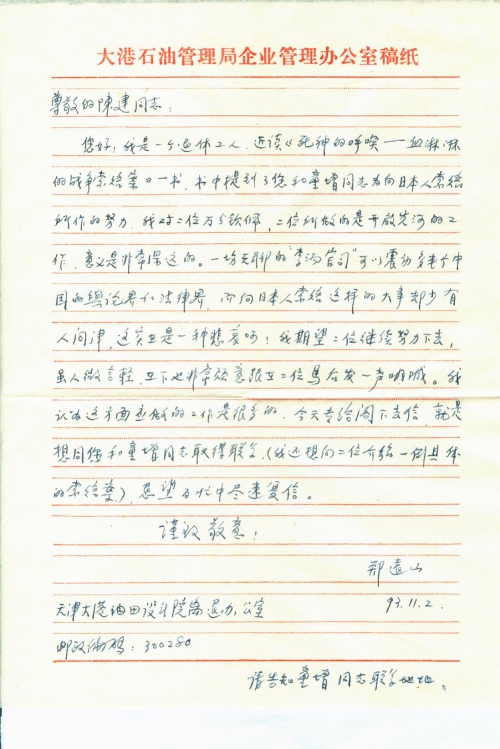 大港石油管理局企业管理办公室稿纸
尊敬的陳建同志：
您好，我是一个退休工人，近读《死神的呼唤——血淋淋
的战争索赔案》一书，书中提到了您和童增同志为向日本人索赔
所作的努力，我对二位万分钦佩，二位所做的是开放先河的工
作，意义是非常深远的。一场无聊的"李谷一官司"可以震动多半个中
国的舆论界和法律界，而向日本人索赔这样的大事却少有
人问津，这实在是一种悲哀呀！我期望二位继续努力下去，
虽人微言轻，在下也非常愿意跟在二位马后发一声呐喊。我
认为这方面应做的工作是很多的，今天专给阁下去信，就是
想同您和童增同志取得联系，（我还想向二位介绍一例具体
的索赔案），恳望百忙中尽速复信。
谨致敬意！
郑远山
93.11.2.
天津大港油田设计院离退办公室
邮政编码：300280
请告知童增同志联系地址。